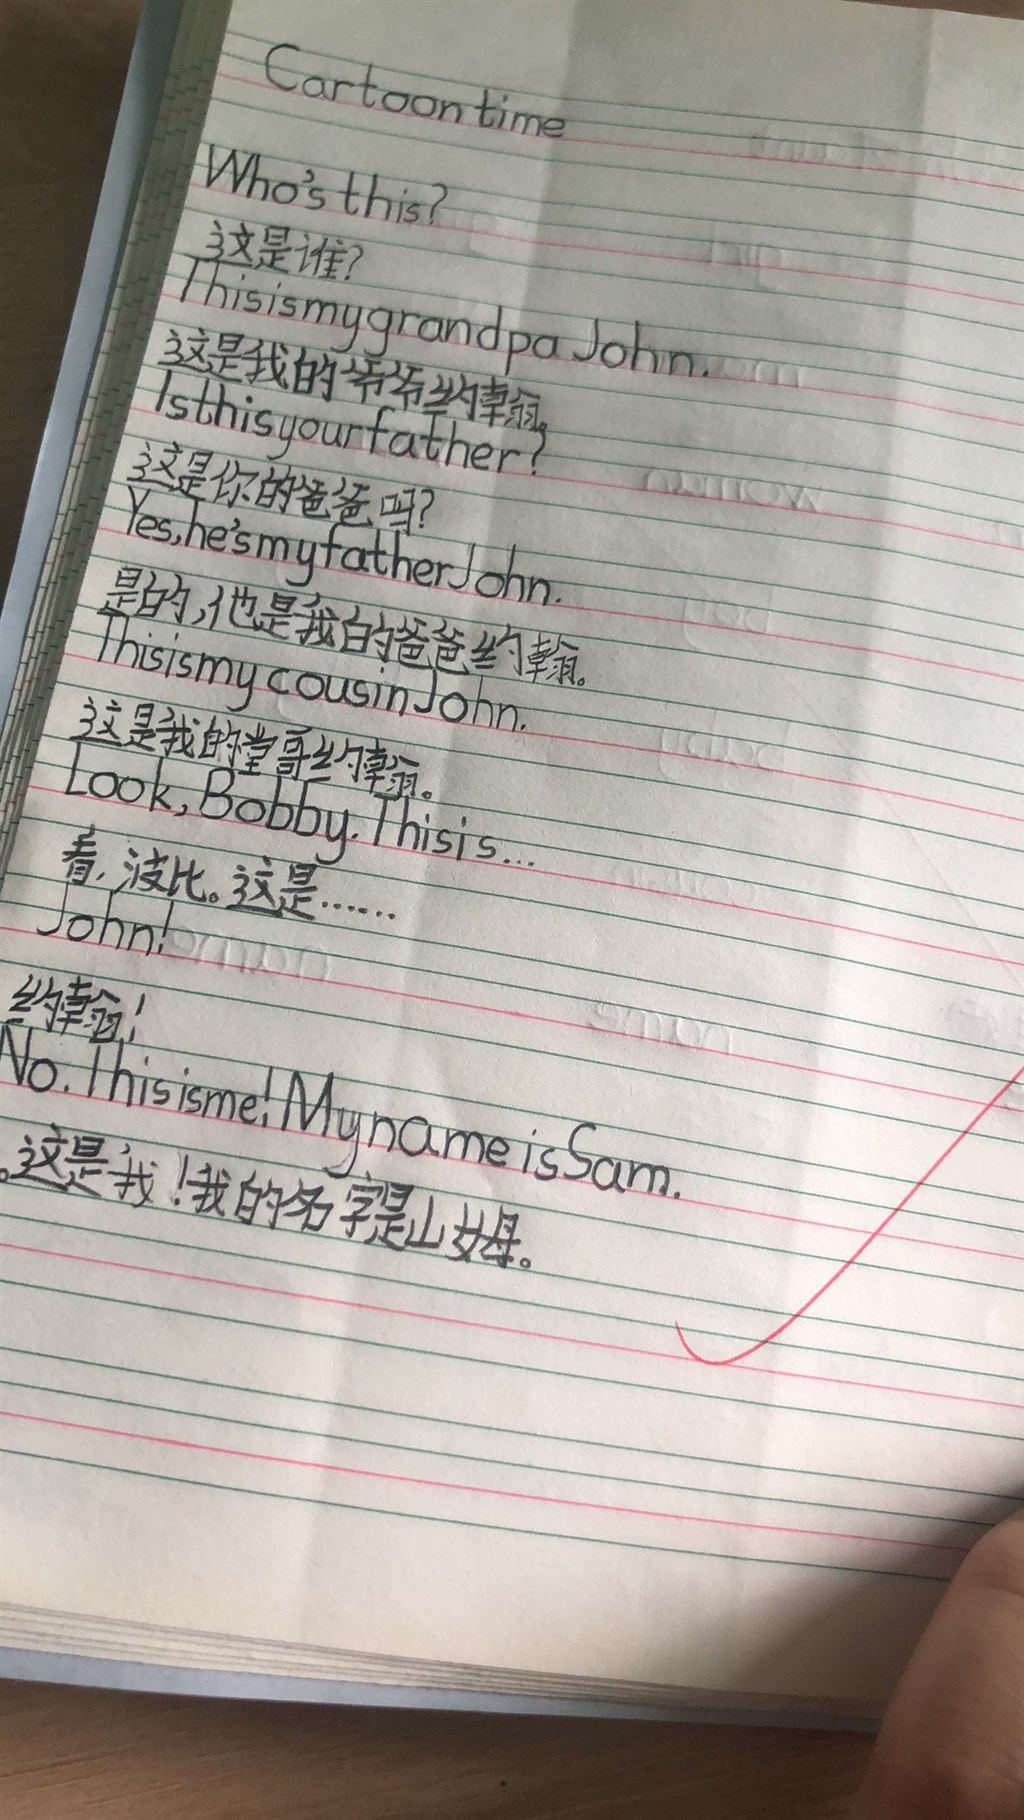 Cartoon time
Who's this?
这是谁?
This is my grandpa John.
这是我的爷爷约翰。
Is this your father?
这是你的爸爸吗?
Yes, he's my father John.
是的,他是我的爸爸约翰。
This is my cousin John.
这是我的堂哥约翰。
Look, Bobby. This is...
看,波比。这是……
John!
约翰!
No. This is me! My name is Sam.
。这是我!我的名字是山姆。